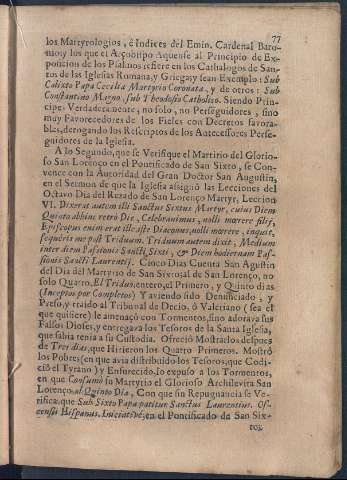 77
los Martyrologios, è Indices del Emin. Cardenal Baro-
nio; y los que el Arçobispo Aquense al Principio de Ex-
posicion de los Psalmos refiere en los Cathalogos de San-
tos de las Iglesias Romana, y Griega; y sean Exemplo: Sub
Calixto Papa Cecilia Martyrio Coronata, y de otros: Sub
Constantino Magno, sub Theodosio Catholico. Siendo Prin-
cipe. Verdaderamente, no solo, no Perseguidores, sino
muy Favorecedores de los Fieles con Decretos favora-
bles, derogando los Rescriptos de los Antecessores Perse-
guidores de la Iglesia.
A lo Segundo, que se Verifique el Martirio del Glorio-
so San Lorenço en el Pontificado de San Sixto, se Con-
vence con la Autoridad del Gran Doctor San Augustin,
en el Sermon de que la Iglesia assignò las Lecciones del
Octavo Dia del Rezado de San Lorenço Martyr, Leccion
VI. Dixerat autem illi Sanctus Sixtus Martyr, cuius Diem
Quinto abhinc retrò Die, Celebravimus, noli mœrere fili,
Episcopus enim erat ille iste Diaconus, noli mœrere, inquit,
sequèris me post Triduum. Triduum autem dixit, Medium
inter diem Passionis Sancti Sixti, & Diem hodiernam Pas-
sionis Sancti Laurentii. Cinco Dias Cuenta San Agustin
del Dia del Martyrio de San Sixto, al de San Lorenço, no
solo Quatro, El Triduo, entero, el Primero, y Quinto dias
(Inceptos por Completos) Y aviendo sido Denunciado, y
Preso, y traido al Tribunal de Decio, ò Valeriano (sea el
que quisiere) le amenaçò con Tormentos, sino adorava sus
Falsos Dioses, y entregava los Tesoros de la Santa Iglesia,
que sabia tenia a su Custodia. Ofreciò Mostrarlos despues
de Tres dias, que Hizieron los Quatro Primeros. Mostrò
los Pobres (en que avia distribuido los Tesoros, que Codi-
ciò el Tyrano) y Enfurecido, lo expuso a los Tormentos,
en que Consumò su Martyrio el Glorioso Archilevita San
Lorenço, al Quinto Dia, Con que sin Repugnancia se Ve-
rifica, que Sub Sixto Papa patitur Sanctus Laurentius. Os-
censis Hispanus. en el Pontificado de San Six-